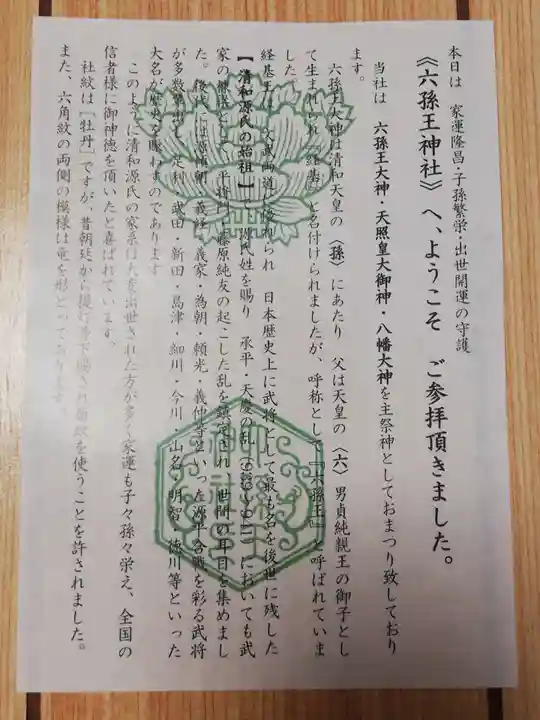 本日は　家運隆昌・子孫繁栄・出世開運の守護
《六孫王神社》へ、ようこそ　ご参拝頂きました。
当社は　六孫王大神・天照皇大御神・八幡大神を主祭神としておまつり致しており
ます。
六孫王大神は清和天皇の〈孫〉にあたり　父は天皇の〈六〉男貞純親王の御子とし
て生まれられ『経基』と名付けられましたが、呼称として『六孫王』と呼ばれていま
した。
経基王は　文武両道に優れられ　日本歴史上に武将として最も名を後世に残した
【清和源氏の始祖】で　源氏姓を賜り　承平・天慶の乱（939～941）においても武
家の棟梁として　平将門・藤原純友の起こした乱を鎮定され　世間の耳目を集めまし
た。後代には源頼朝・義経・義家・為朝・頼光・義仲等といった源平合戦を彩る武将
が多数輩出し　足利・武田・新田・島津・細川・今川・山名・明智・徳川等といった
大名が歴史を賑わすのであります
このように清和源氏の家系は大変出世された方が多く家運も子々孫々栄え、全国の
信者様に御神徳を頂いたと喜ばれています。
社紋は［牡丹］ですが、昔朝廷から
下賜され
紋を使うことを許されました。
また、六角紋の両側の模様は竜を形どっております。